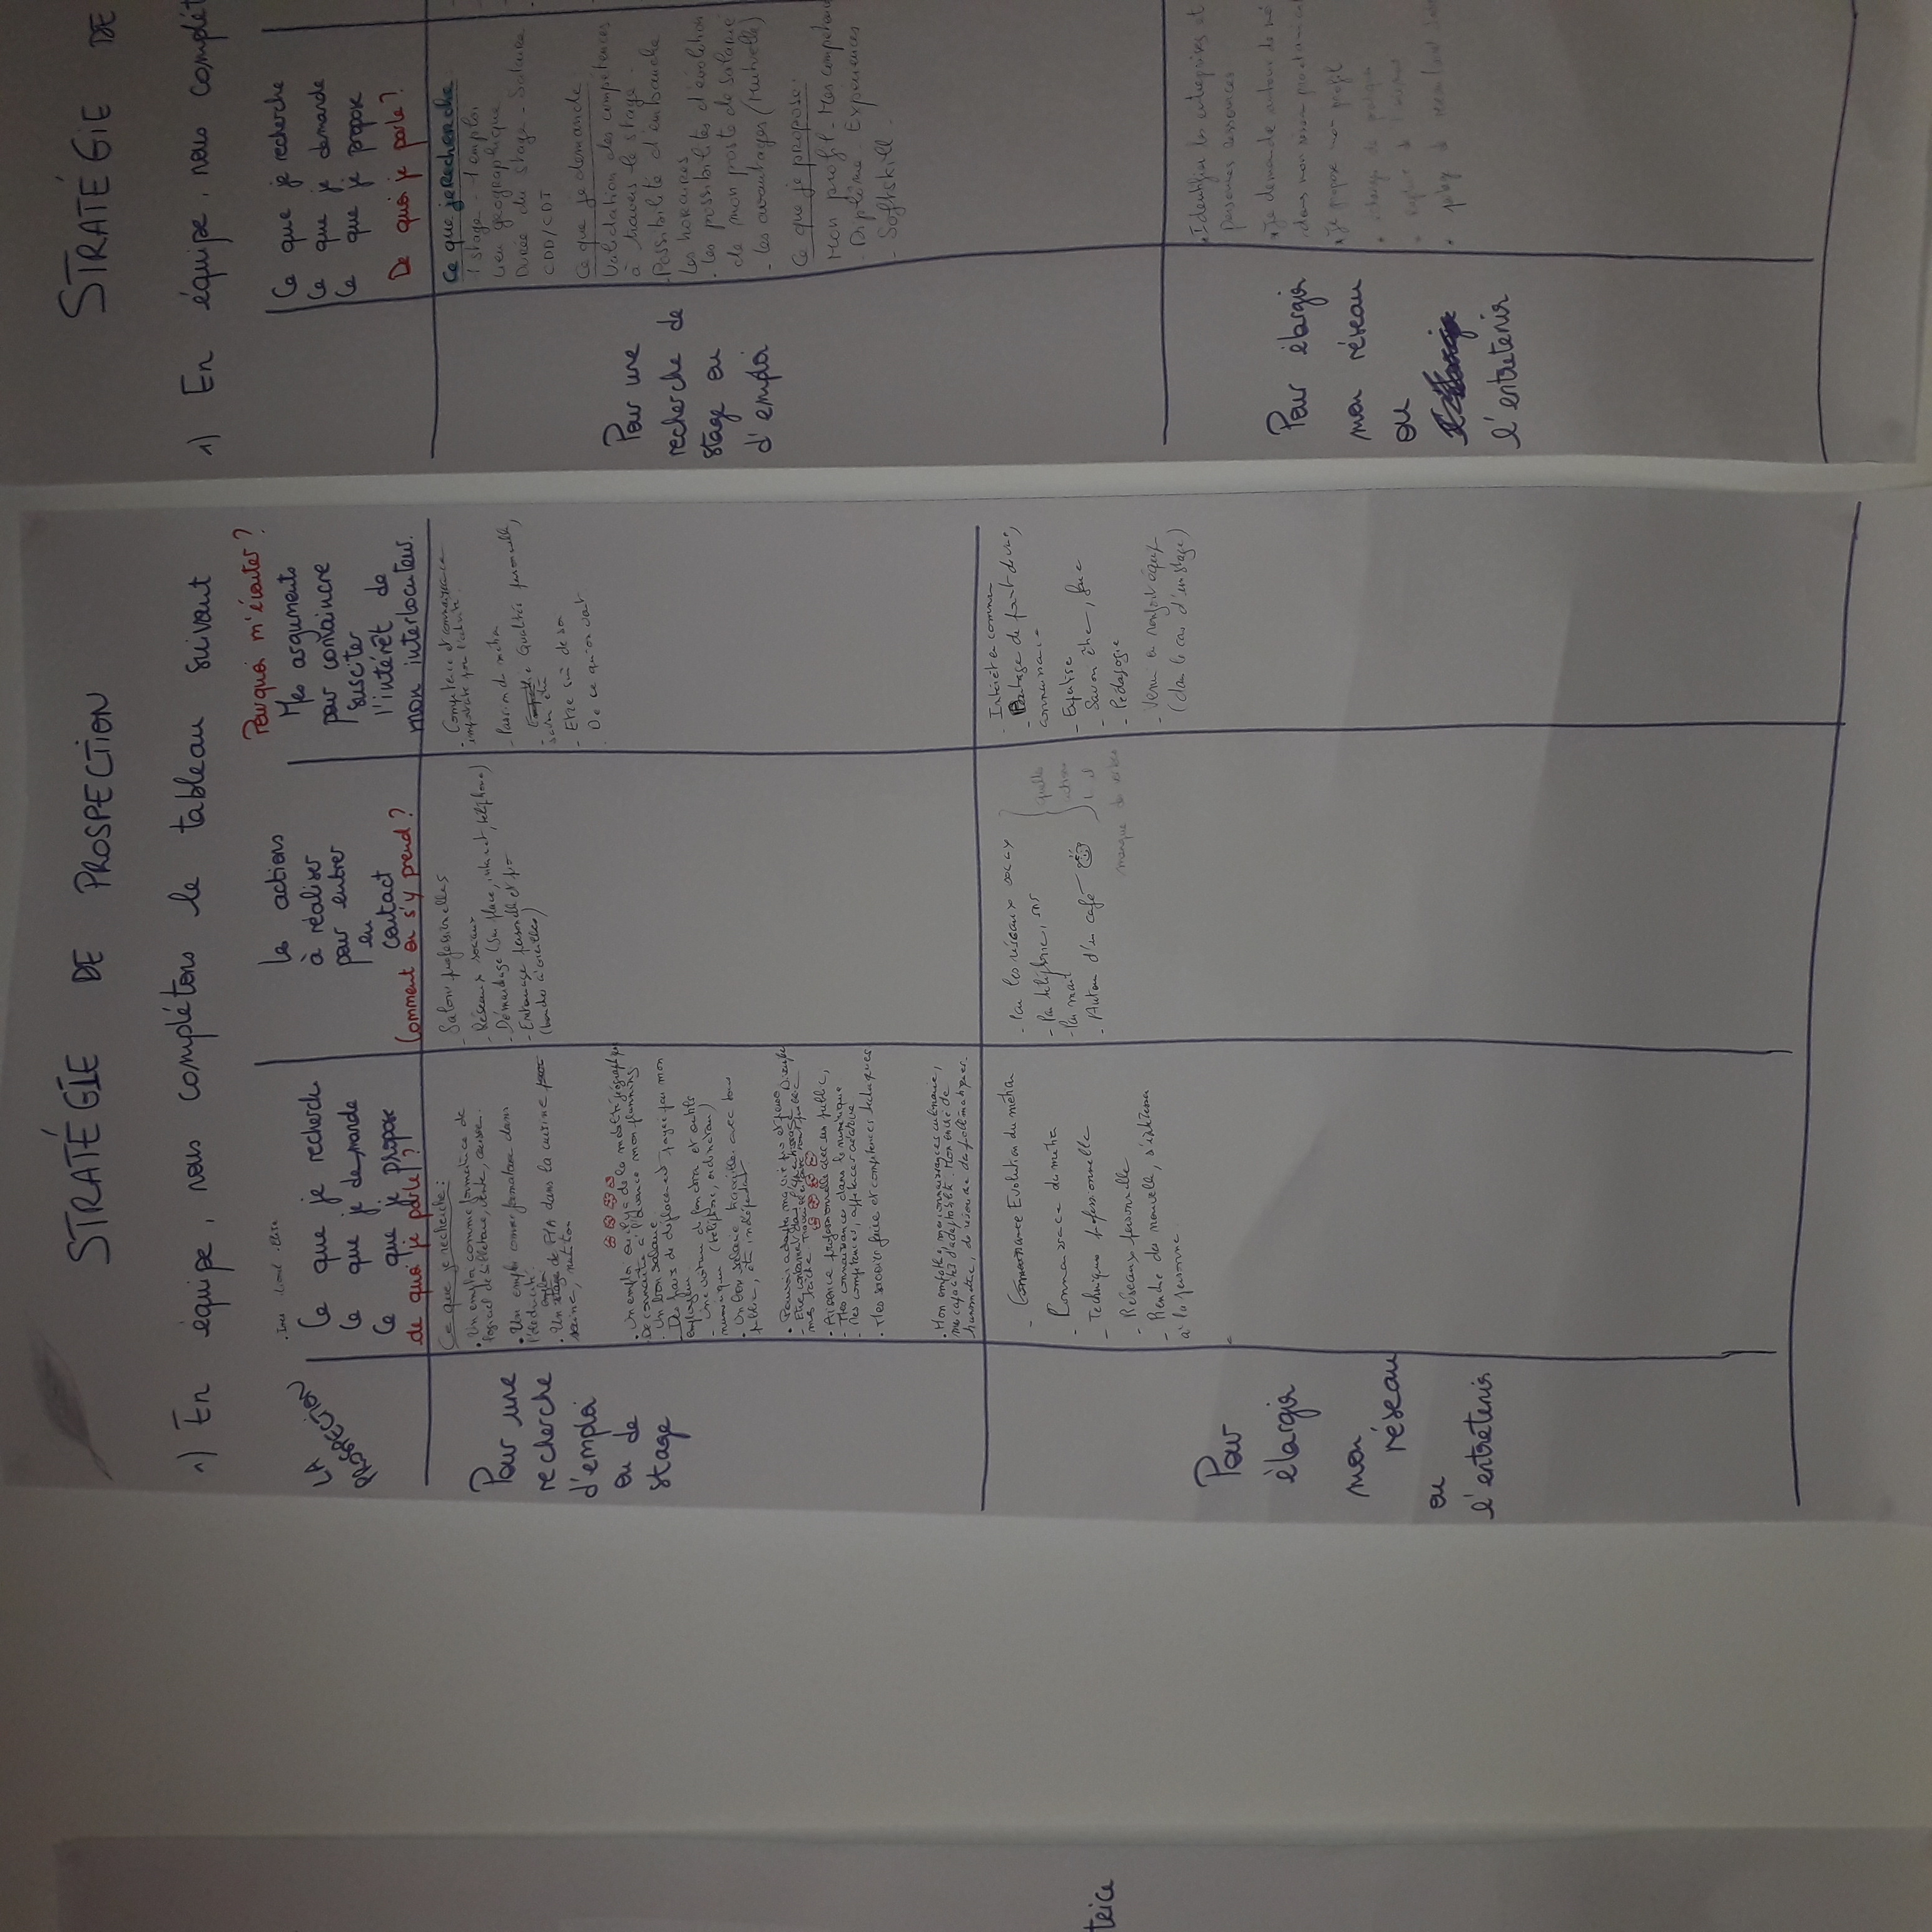 STRATÉGIE DE PROSPECTION
1) En équipe, nous complétons le tableau suivant
LA PROSPECTION
Ce que je recherche
Ce que je demande
Ce que je propose
de quoi je parle ?
les actions
à réaliser
pour entrer
en
contact
Comment on s'y prend ?
Pourquoi m'écouter ?
Mes arguments
pour convaincre
susciter
l'intérêt de
mon interlocuteur.
Pour une
recherche
d'emploi
ou de
stage
Ce que je recherche :
. Un emploi comme formatrice de
logiciel de billetterie, vente, caisse.
. Un emploi comme formateur dans
. Un emploi de dans la cuisine
nutrition
. Un emploi ou il y a de la mobilité géographique
De connaitre à l'avance mon planning
. Un bon salaire
- Des frais de déplacement payée par mon
employeur
- Une voiture de fonction et outils
numérique (téléphone, ordinateur)
. Un bon salaire avec tous
public, être indépendant
. Pouvoir adapter ma vie pro et perso
- Etre dans l'apprentissage
- Aisance professionnelle avec un public,
- Mes connaissances dans le numérique
- Mes compétences,
. Mes savoirs faire et compétences techniques
. Mon empathie, mes connaissances culinaire,
ma capacité d'adaptabilité. Mon envie de
transmettre, de résoudre des problématiques.
- Salons professionnelles
- Réseaux sociaux
- Démarchage (sur place, internet, téléphone)
- Entourage personnelle et pro
(bouches à oreilles)
- Compétence et connaissance
importante pour l'activité
- Passion du métier
- Qualités personnelle,
savoir être
- Etre sûr de soi
- De ce qu'on vaut
Pour
élargir
mon
réseau
ou
l'entretenir
- Evolution du métier
- Connaissance du métier
- Techniques professionnelle
- Réseaux personnelle
- Prendre des nouvelle, s'intéresser
à la personne
- Par les réseaux sociaux
- Par téléphone, sms
- Par mail
- Autour d'un café
quelle
manque des verbes
- Intérêt en commun
- Partage de point de vue,
connaissance
- Expertise
- Savoir être, faire
- Pédagogie
- Venir en renfort équipe
(dans le cas d'un stage)
STRATÉGIE DE
1) En équipe, nous complét
Ce que je recherche
Ce que je demande
Ce que je propose
De quoi je parle ?
Pour une
recherche de
stage ou
d'emploi
Ce que je Recherche
1 stage - 1 emploi
Lieu géographique
Durée du stage - Salaire
CDD/CDI
Ce que je demande
Validation des compétences
à travers le stage.
- Possibilité d'embauche
Les horaires
. Les possibilités d'évolution
de mon poste de salarié
- Les avantages (Mutuelle)
Ce que je propose :
Mon profil - Mes compétenc
- Diplôme - Experiences
- Softskill
Pour élargir
mon réseau
ou
l'entretenir
. Identifier les entreprises et
personnes ressources
. Je demande autour de moi
dans mon réseau pro et amical
. Je propose mon profil
. échange de pratique
trice